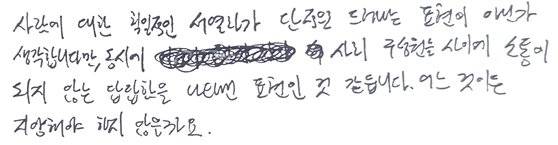 사람에 대한 획일적인 서열화가 단적으로 드러나는 표현이 아닌가
생각합니다만, 동시에 사회 구성원들 사이에 소통이
되지 않는 답답함을 나타낸 표현인 것 같습니다. 어느 것이든
지양해야 하지 않은가요.